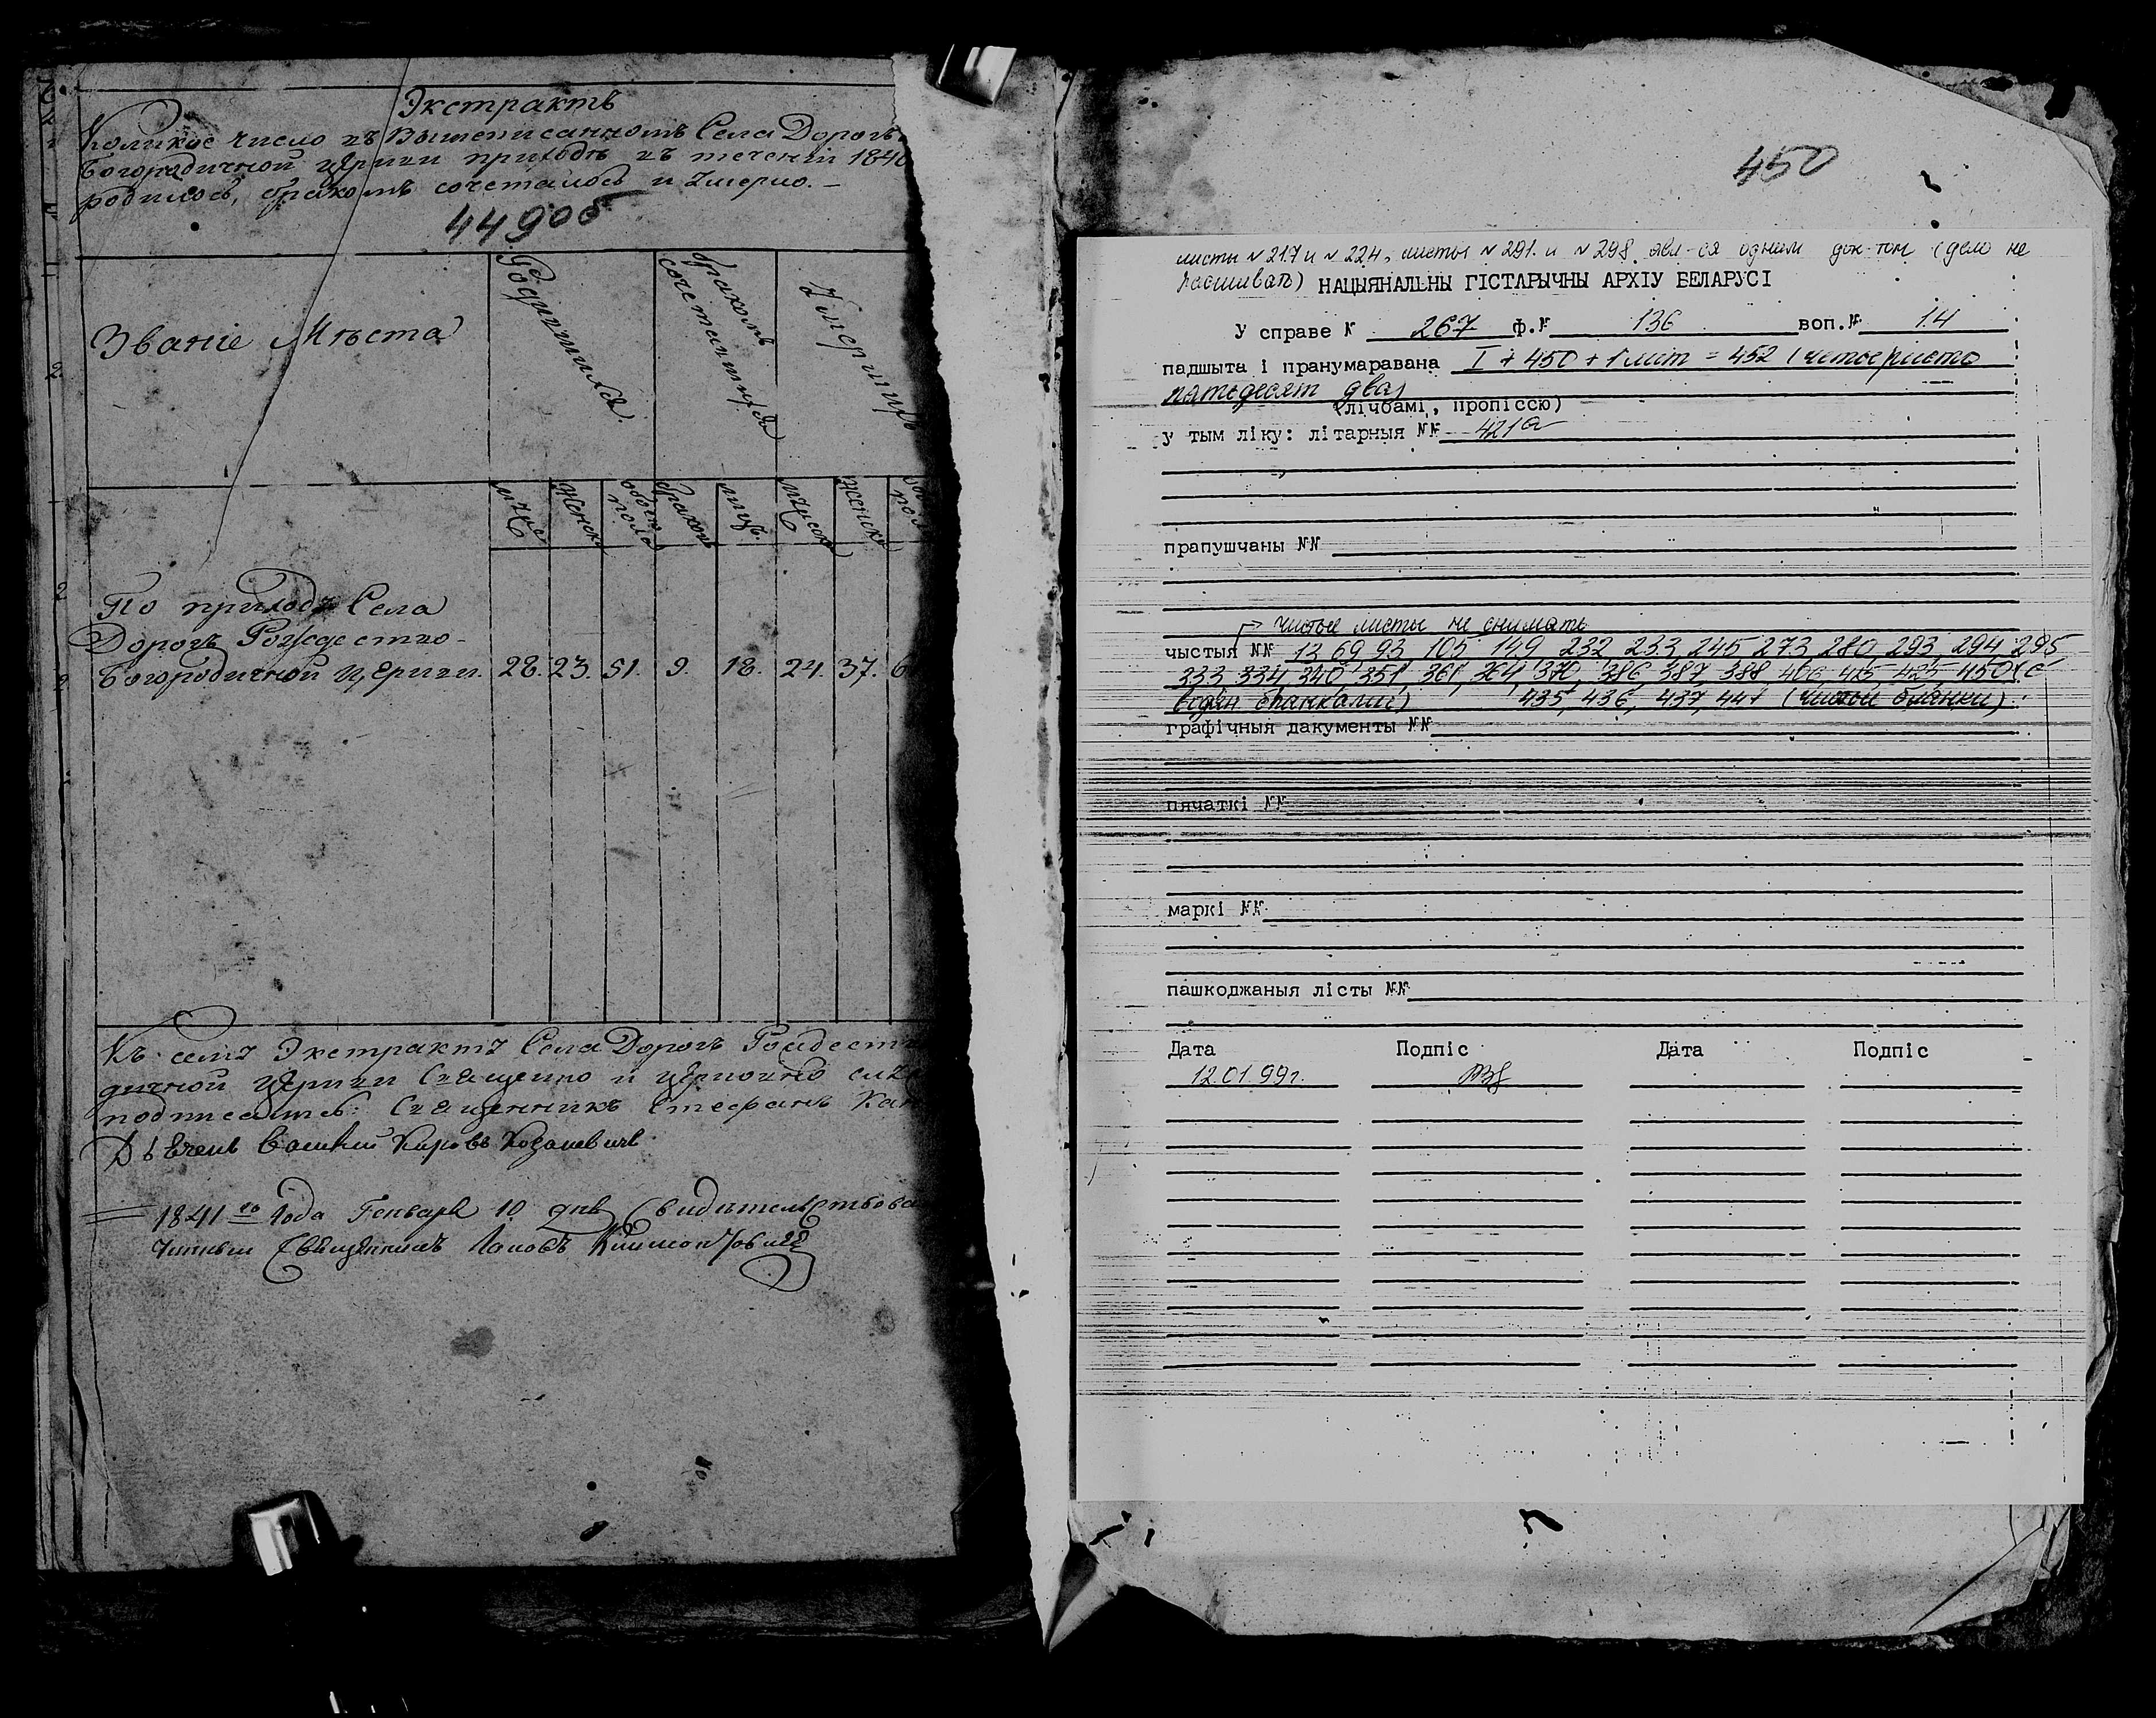 Экстрактъ
Коликое число въ вышеписанномъ Села Дорогъ
Богородичной церкви приходѣ въ теченіи 1840
родилось, бракомъ сочеталось и умерло.
449об
Званіе Мѣста
Родившихся
бракомъ сочетавшихся
Умершихъ
муж
женск
обоего пола
браковъ
лицъ
мужеск
женска
По приходѣ Села
Дорогъ Рождество-
Богородичной церкви. 28. 23. 51. 9. 18. 24. 37. 6
Къ сему Экстракту Села Дорогъ Рождество
дичной церкви Священно и церковно слу
подписались: Священникъ Стефанъ Кан
1841го Года Генваря 10 дня Свидѣтельствова
Священникъ
450
листы N 217 и N 224, листы N 291. и N 298 явл-ся одним док-том (дело не
расшиват)
НАЦЫЯНАЛЬНЫ ГІСТАРЫЧНЫ АРХІУ БЕЛАРУСІ
У справе N 267 ф.N 136 воп.N 14
падшыта і пранумаравана I + 450 + 1 лист = 452 (четыриста
пятьдесят два)
(лічбамі, пропіссю)
у тым ліку: літарныя NN 421а
прапушчаны NN
чистые листы не снимать
чыстыя NN 13 69, 93, 105, 149, 232, 233, 245 273 280, 293, 294, 295
333 334, 340 351 361, 364, 370, 386, 387, 388, 406, 415, 425 450 (с
435, 436, 437, 441 (чистой бланки)
графічныя дакументы NN
пячаткі NN
маркі NN
пашкоджаныя лісты NN
Дата Подпіс Дата Подпіс
12.01.99г.